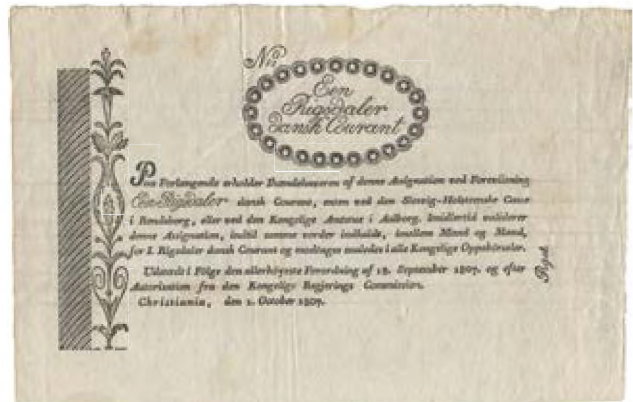 No
Een
Rigsdaler
dansk Courant
Paa Forlangende erholder Ihændehaveren af denne Assignation ved Foreviisning
Een Rigsdaler dansk Courant, enten ved den Slesvig-Holsteenske Casse
i Rendsborg, eller ved den Kongelige Amtstue i Aalborg. Imidlertid validerer
denne Assignation, indtil samme vorder indløst, imellem Mand og Mand,
for 1. Rigsdaler dansk Courant og modtages saaledes i alle Kongelige Oppebørseler.
Udstædt i Følge den allerhøieste Forordning af 18. September 1807. og efter
Autorisation fra den Kongelige Regjerings Commission.
Christiania, den 1. October 1807.